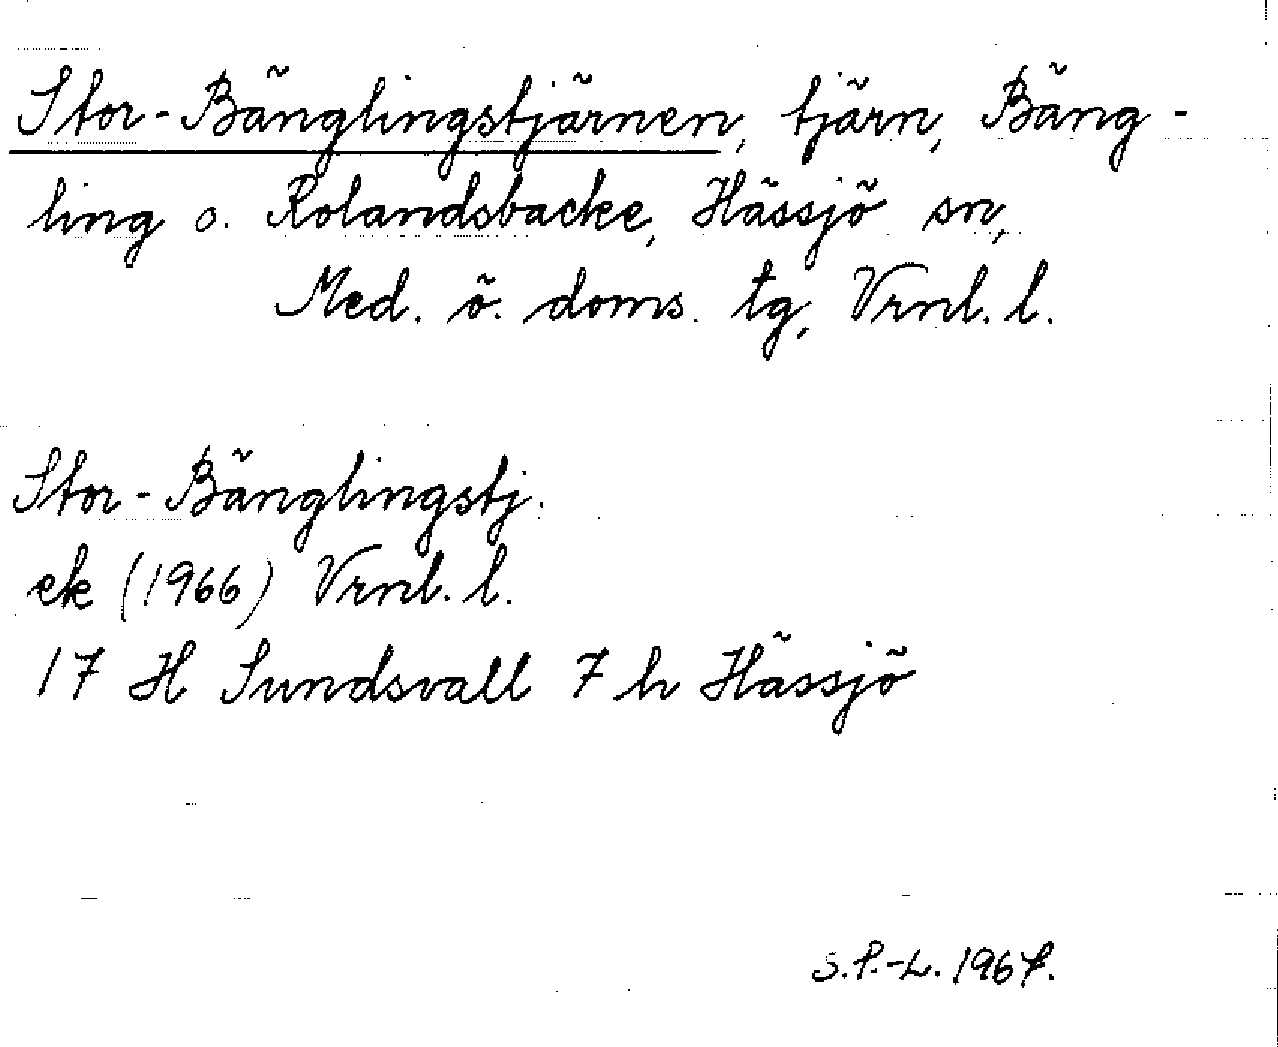 Stor-Bänglingstjärnen, tjärn, Bäng-
ling o. Rolandsbacke, Hässjö sn,
Med. ö. doms. tg, Vrnl. l.
Stor-Bänglingstj.
ek (1966) Vrnl. l.
17 H Sundsvall 7 h Hässjö
S.P.-L. 1967.